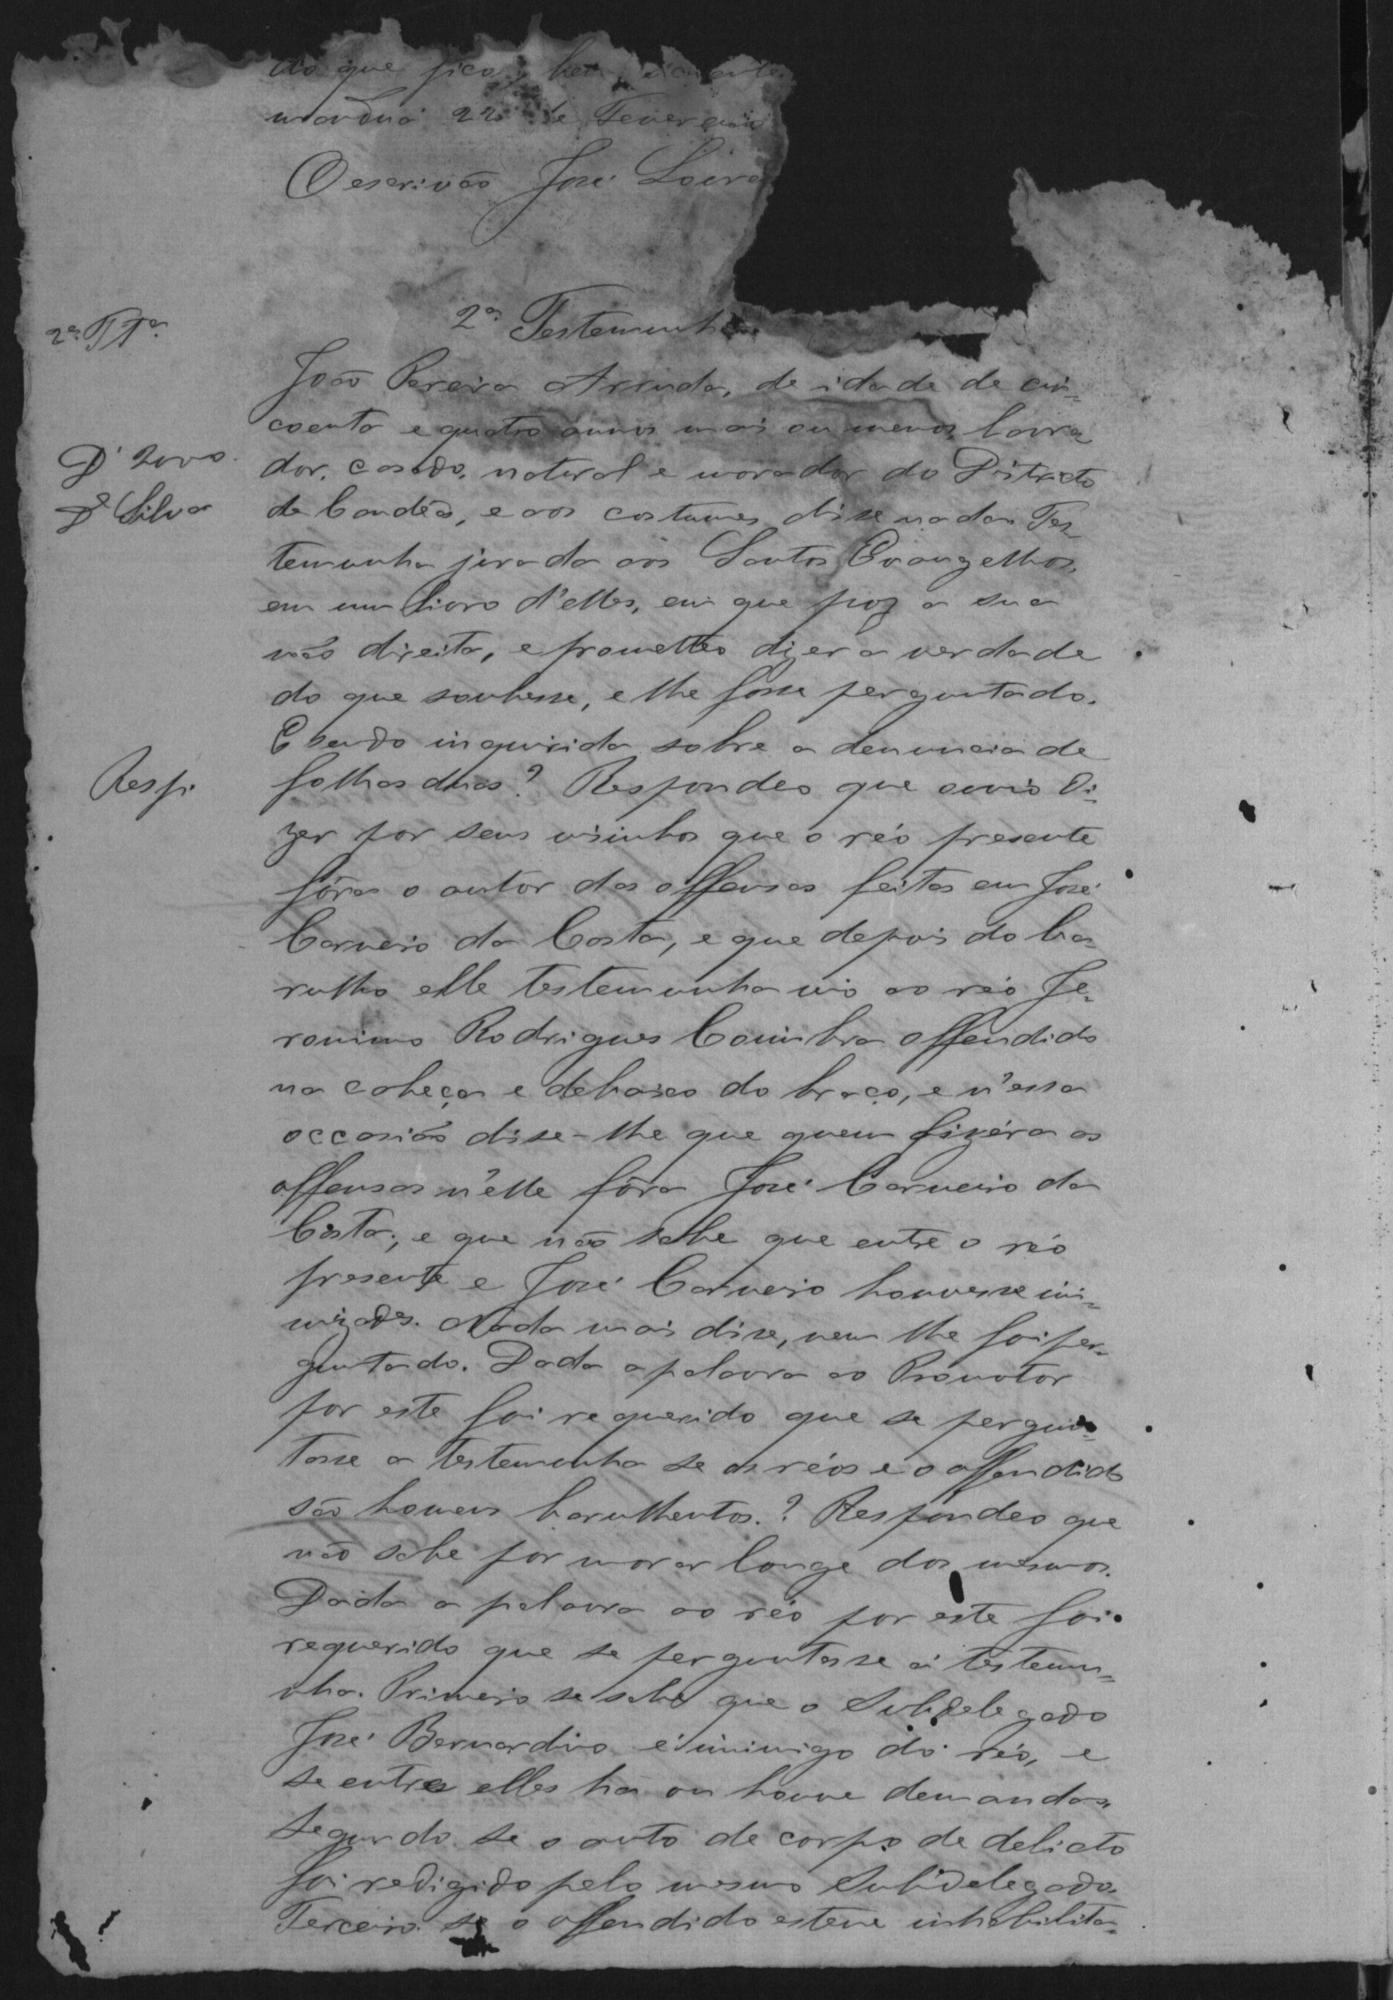 do que fico,
22 de Fevereiro
O escrivão José
2ª Testemunha
2ª TTª
João Pereira Arruda, de idade de cin-
coenta e quatro annos mais ou menos, lavra
D' 2000.
dor, casado, natural e morador do Ditricto
Dº Silva
de Candêa, e aos costumes disse nada. Tes-
temunha jurada aos Santos Evangelhos,
em um livro d'elles, em que poz a sua
mão direita, e prometteo dizer a verdade
do que soubesse, e lhe fosse perguntado.
E sendo inquirida sobre a denuncia de
Resp.
folhas duas? Respondeo que ouvio di-
zer por seus visinhos que o réo presente
fôra o autor das offensas feitas em José
Carneiro da Costa, e que depois do ba-
rulho elle testemunha vio ao réo Je-
ronimo Rodrigues Coimbra offendido
na cabeça e debaixo do braço, e n'essa
occasião disse-lhe que quem fizéra as
offensas n'elle fôra José Carneiro da
Costa; e que não sabe que entre o réo
presente e José Carneiro houvesse ini-
mizades. Nada mais disse, nem lhe foi per-
guntado. Dada a palavra ao Promotor
por este foi requerido que se pergun-
tasse a testemunha se os réos e o offendido
são homens barulhentos.? Respondeo que
não sabe por morar longe dos mesmos.
Dada a palavra ao réo por este foi
requerido que se perguntasse á testemu-
nha. Primeiro se sabe que o Subdelegado
José Bernardino é inimigo do réo, e
se entre elles ha ou houve demandas.
Segundo se o auto de corpo de delicto
foi redigido pelo mesmo Subdelegado.
Terceiro se o offendido esteve inhabilita-